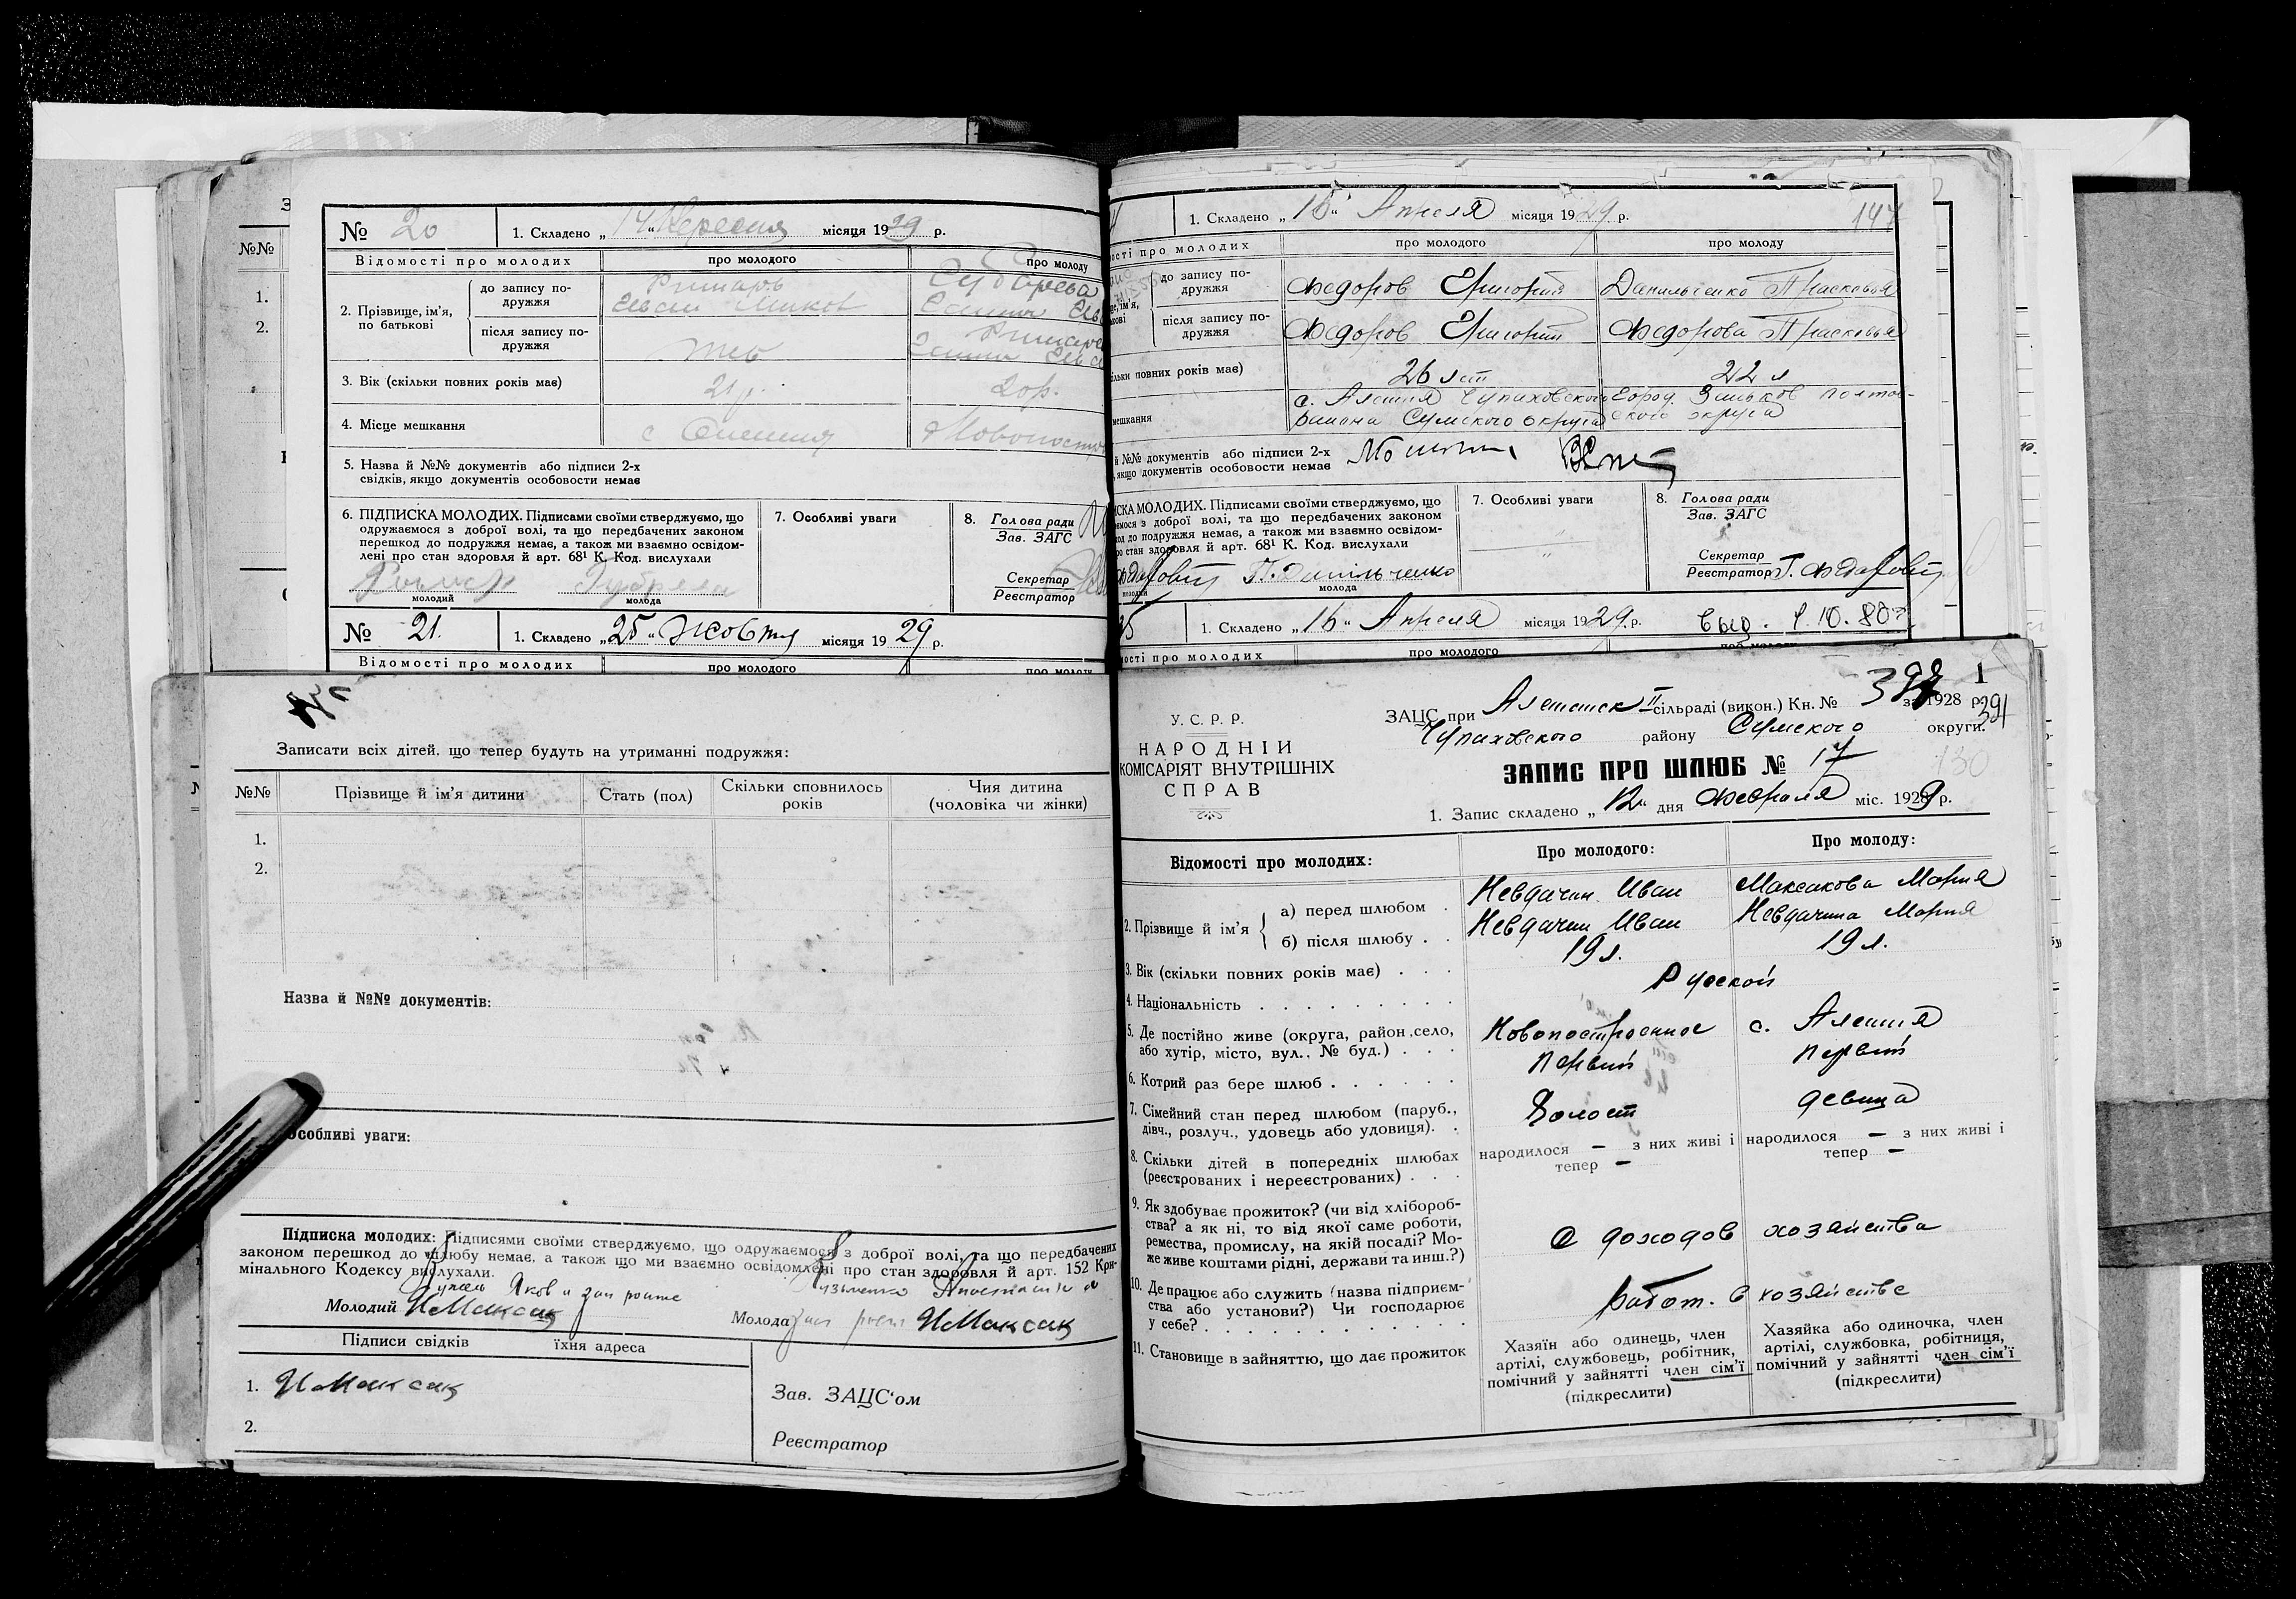 № 20
1. Складено „14“ Вересня місяця 1929 р.
Відомості про молодих
про молодого
про молоду
2. Прізвище, ім'я, по батькові
до запису по-
дружжя
після запису по-
дружжя
3. Вік (скільки повних років має)
21 р.
20 р.
4. Місце мешкання
5. Назва й №№ документів або підписи 2-х
свідків, якщо документів особовости немає
6. ПІДПИСКА МОЛОДИХ. Підписами своїми стверджуємо, що
одружаємося з доброї волі, та що передбачених законом
перешкод до подружжя немає, а також ми взаємно освідом-
лені про стан здоровля й арт. 68¹ К. Код. вислухали
молодий
молода
7. Особливі уваги
8. Голова ради
Зав. ЗАГС
Секретар
Реєстратор
№ 21.
1. Складено „25“ Жовтня місяця 1929 р.
Відомості про молодих
про молодого
про молоду
Записати всіх дітей, що тепер будуть на утриманні подружжя:
№№
Прізвище й ім'я дитини
Стать (пол)
Скільки сповнилось
років
Чия дитина
(чоловіка чи жінки)
1.
2.
Назва й №№ документів:
Особливі уваги:
Підписка молодих: Підписями своїми стверджуємо, що одружаємося з доброї волі, та що передбачених
законом перешкод до шлюбу немає, а також що ми взаємно освідомлені про стан здоровля й арт. 152 Кри-
мінального Кодексу вислухали.
Яков и
Молодий ИМаксак
Молода ИМаксак
Підписи свідків
їхня адреса
1. ИМаксак
2.
Зав. ЗАЦС'ом
Реєстратор
1. Складено „15“ Апреля місяця 1929 р.
147
про молодого
про молоду
до запису по-
дружжя
Федоров Григорий
Данильченко Прасковья
після запису по-
дружжя
Федоров Григорий
Федорова Прасковья
повних років має)
26 лет
22 л
с. Алешня Чупаховского
района Сумского округа
город. Зиньков полтав-
ского округа
мешкання
й №№ документів або підписи 2-х
якщо документів особовости немає
МОЛОДИХ. Підписами своїми стверджуємо, що
з доброї волі, та що передбачених законом
до подружжя немає, а також ми взаємно освідом-
стан здоровля й арт. 68¹ К. Код. вислухали
П. Данильченко
молода
7. Особливі уваги
8. Голова ради
Зав. ЗАГС
Секретар
Реєстратор
1. Складено „16“ Апреля місяця 1929 р.
про молодого
У. С. Р. Р.
НАРОДНІЙ
КОМІСАРІЯТ ВНУТРІШНІХ
СПРАВ
ЗАЦС при Алешнск II сільраді (викон.) Кн. № за 1928 р.
391
Чупаховского району Сумского округи.
130
ЗАПИС ПРО ШЛЮБ № 17
1. Запис складено „12“ дня Февраля міс. 1929 р.
Відомості про молодих:
Про молодого:
Про молоду:
2. Прізвище й ім'я
а) перед шлюбом .
Невдачин Иван
Максакова Мария
б) після шлюбу . .
Невдачин Иван
Невдачина Мария
3. Вік (скільки повних років має) . . .
19 л.
19 л.
4. Національність . . . . . . . . .
Русской
5. Де постійно живе (округа, район, село,
або хутір, місто, вул., № буд.) . . .
Новопостроенное
с. Алешня
6. Котрий раз бере шлюб . . . . . .
первый
первый
7. Сімейний стан перед шлюбом (паруб.,
дівч., розлуч., удовець або удовиця). .
Холост
девица
8. Скільки дітей в попередніх шлюбах
(реєстрованих і нереєстрованих) . . .
народилося — з них живі і
тепер —
народилося — з них живі і
тепер —
9. Як здобуває прожиток? (чи від хлібороб-
ства? а як ні, то від якої саме роботи,
ремества, промислу, на якій посаді? Мо-
же живе коштами рідні, держави та инш.?)
С доходов хозяйства
10. Де працює або служить (назва підприєм-
ства або установи?) Чи господарює
у себе? . . . . . . . . . . . .
работ. в хозяйстве
11. Становище в зайняттю, що дає прожиток
Хазяїн або одинець, член
артілі, службовець, робітник,
помічний у зайнятті член сім'ї
(підкреслити)
Хазяйка або одиночка, член
артілі, службовка, робітниця,
помічний у зайнятті член сім'ї
(підкреслити)